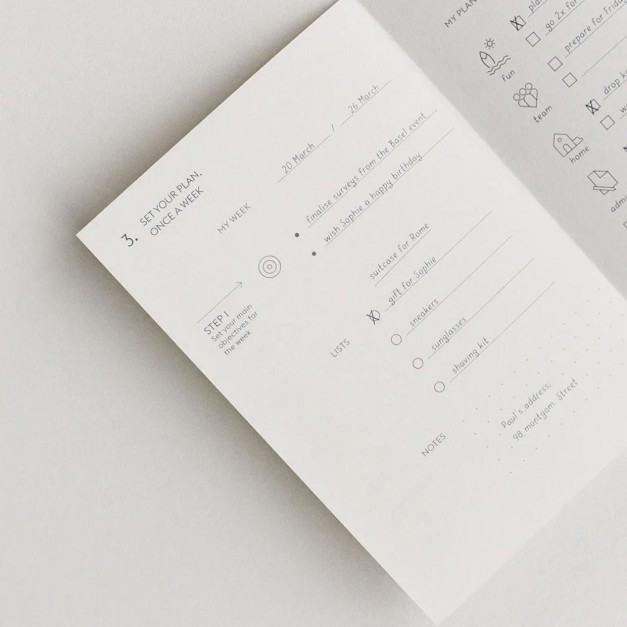 3. SET YOUR PLAN,
ONCE A WEEK
MY WEEK
20 March / 26 March
finalise surveys from the Basel event
wish Sophie a happy birthday
STEP 1
Set your main
objectives for
the week
LISTS
suitcase for Rome
gift for Sophie
sneakers
sunglasses
shaving kit
NOTES
Paul's address:
98 montgom. Street
MY PLAN
go 2x for
prepare for friday
fun
team
drop
home